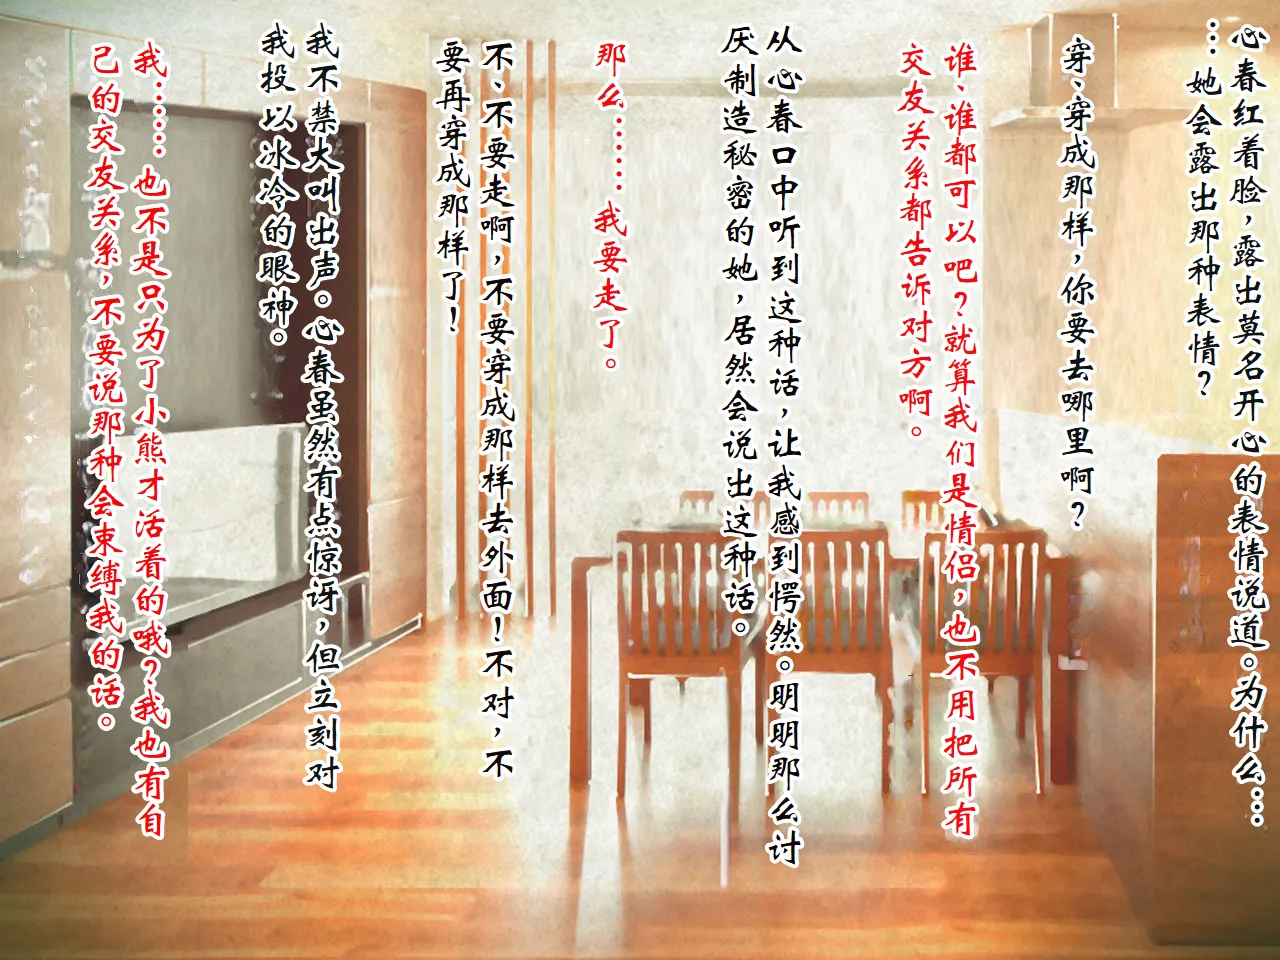 心春红着脸，露出莫名开心的表情说道。为什么…
…她会露出那种表情？
穿、穿成那样，你要去哪里啊？
谁、谁都可以吧？就算我们是情侣，也不用把所有
交友关系都告诉对方啊。
从心春口中听到这种话，让我感到愕然。明明那么讨
厌制造秘密的她，居然会说出这种话。
那么……我要走了。
不、不要走啊，不要穿成那样去外面！不对，不
要再穿成那样了！
我不禁大叫出声。心春虽然有点惊讶，但立刻对
我投以冰冷的眼神。
我……也不是只为了小熊才活着的哦？我也有自
己的交友关系，不要说那种会束缚我的话。